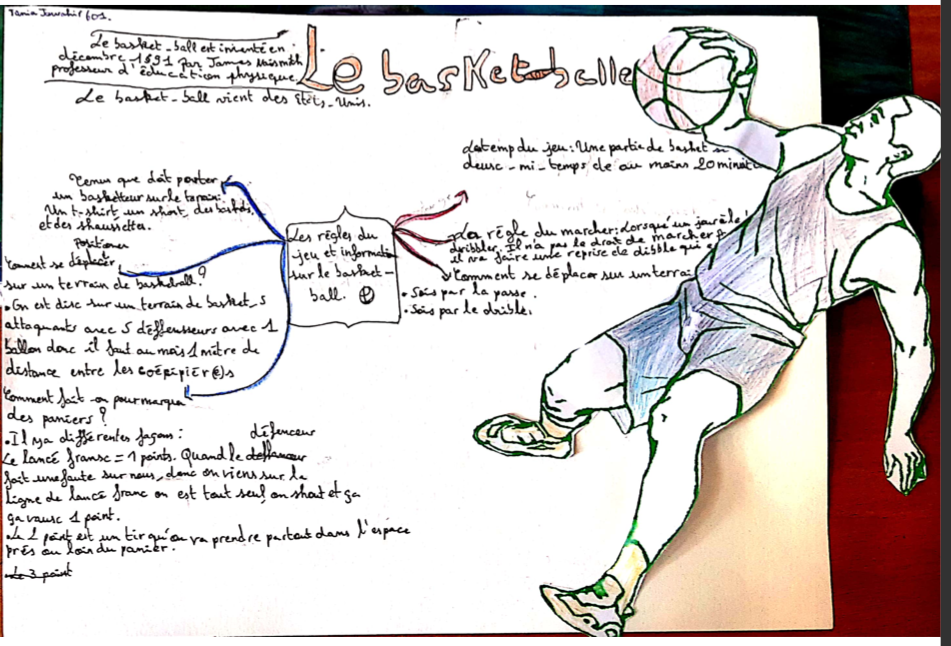 Le basket-balle
Le basket-ball est inventé en
décembre 1891 par James
professeur d'éducation physique.
Le basket-ball vient des États-Unis.
Tenue que doit porter
un basketteur sur le terrain:
Un t-shirt, un short, des baskets,
et des shaussettes.
Positioner
Comment se déplacer
sur un terrain de basketball?
• On est disc sur un terrain de basket, 5
attaquants avec 5 déffensseurs avec 1
ballon donc il faut au mois 1 mètre de
distance entre les coépipier(e)s
Comment fait-on pour marqua
des paniers?
• Il y a différentes façons:
défenceur
Le lancé fransc = 1 points. Quand le
fait une faute sur nous, donc on viens sur la
ligne de lancé franc on est tout seul on shoot et ça
ça vausc 1 point.
• Le 2 point est un tir qu'on va prendre partout dans l'espace
près ou loin du panier.
Le 3 point
Les règles du
jeu et information
sur le basket-
ball.
Le temp du jeu: Une partie de basket
deusc-mi-temps de au moins 20
La règle du marcher: Lorsqu'un
dribbler. Il n'a pas le droit de marcher
il va faire une reprise de dibble qui
Comment se déplacer sur un terrai
• Sois par la passe.
• Sois par le drible.